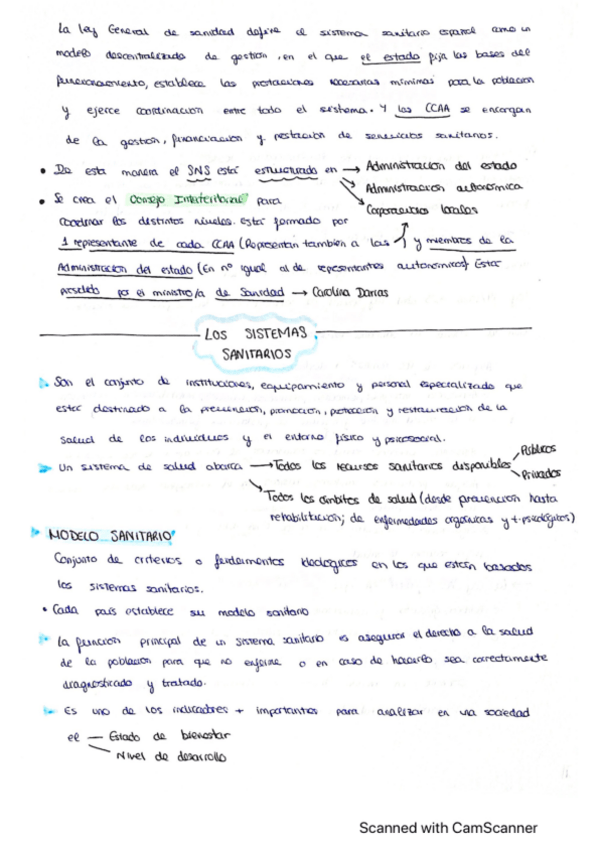 La ley General de sanidad define el sistema sanitario español como un
modelo descentralizado de gestión, en el que el estado fija las bases del
funcionamiento, establece las prestaciones necesarias mínimas para la población
y ejerce coordinación entre todo el sistema. Y las CCAA se encargan
de la gestión, financiación y prestación de servicios sanitarios.
• De esta manera el SNS está estructurado en → Administración del estado
Administración autonómica
Corporaciones locales
• Se crea el Consejo Interterritorial para
coordinar los distintos niveles. Está formado por
1 representante de cada CCAA (Representan también a las ) y miembros de la
Administración del estado (En nº igual al de representantes autonómicos) Está
presidido por el ministro/a de Sanidad → Carolina Darias
LOS SISTEMAS
SANITARIOS
Son el conjunto de instituciones, equipamiento y personal especializado que
están destinado a la prevención, promoción, protección y restauración de la
salud de los individuos y el entorno físico y psicosocial.
Un sistema de salud abarca → Todos los recursos sanitarios disponibles
Públicos
Privados
Todos los ámbitos de salud (desde prevención hasta
rehabilitación; de enfermedades orgánicas y + psicológicas)
MODELO SANITARIO
Conjunto de criterios o fundamentos ideológicos en los que están basados
los sistemas sanitarios.
• Cada país establece su modelo sanitario
La función principal de un sistema sanitario es asegurar el derecho a la salud
de la población para que no enferme o en caso de hacerlo sea correctamente
diagnosticado y tratado.
Es uno de los indicadores + importantes para analizar en una sociedad
el — Estado de bienestar
Nivel de desarrollo
Scanned with CamScanner